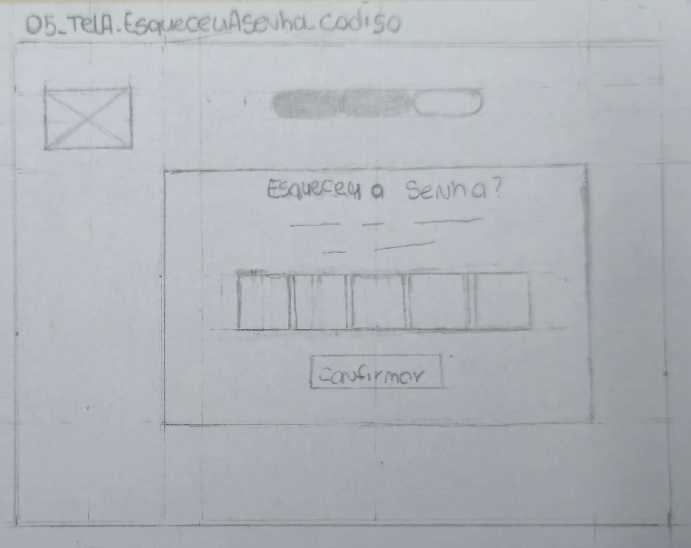 05_TelA.EsqueceuAsenha_codigo
Esqueceu a Senha?
confirmar